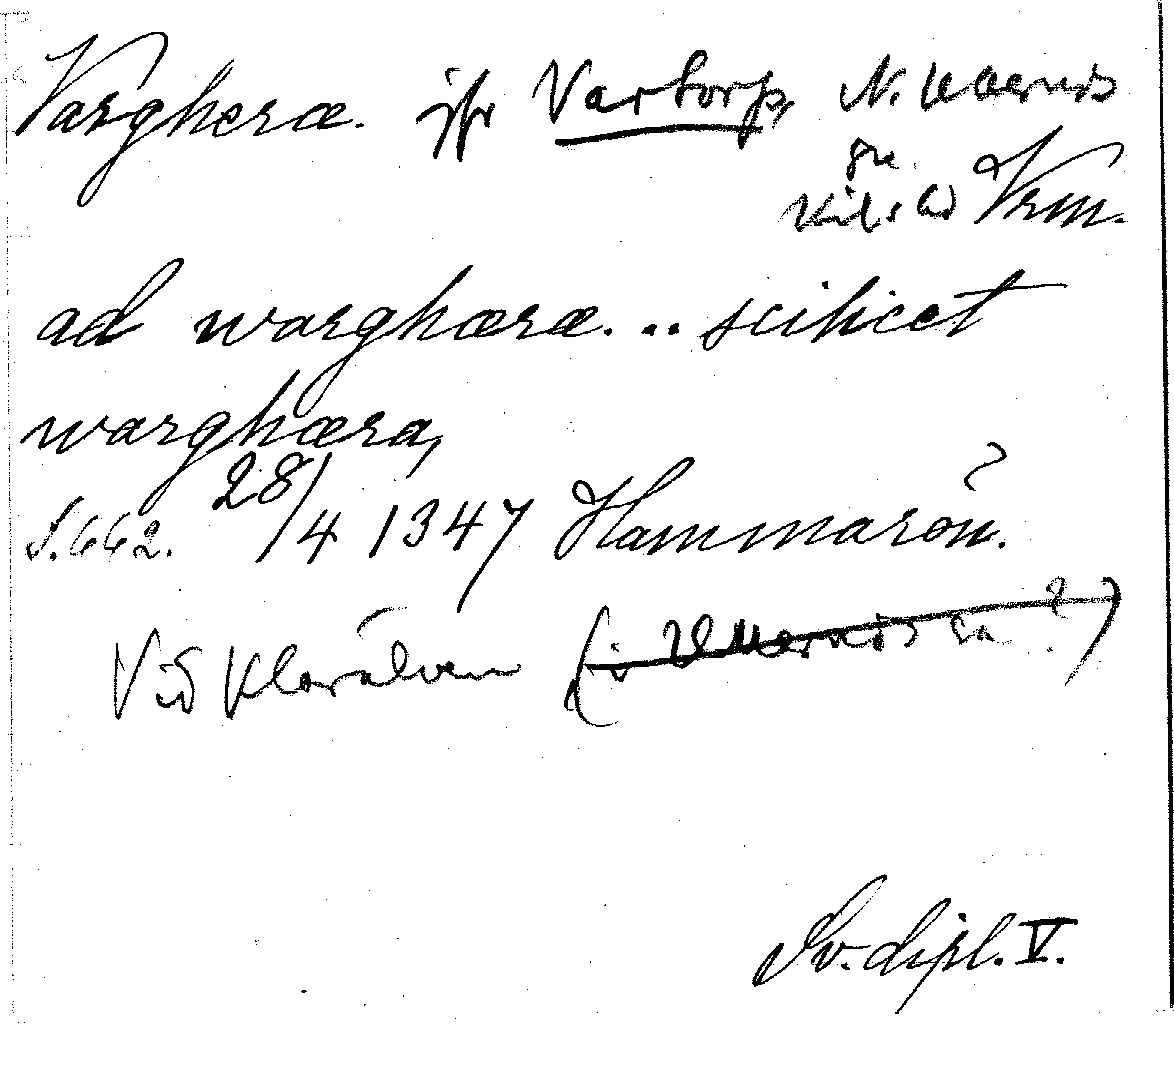 Vargheræ. jfr Vartorp, N. Ullerud s
gm.
Kils hd Vrm.
ad warghæræ. .. scilicet
warghæra,
S. 662. 28/4 1347 Hammarön. ?
Vid Klarälven (i Ullerud s sn ?)
Sv. dipl. V.